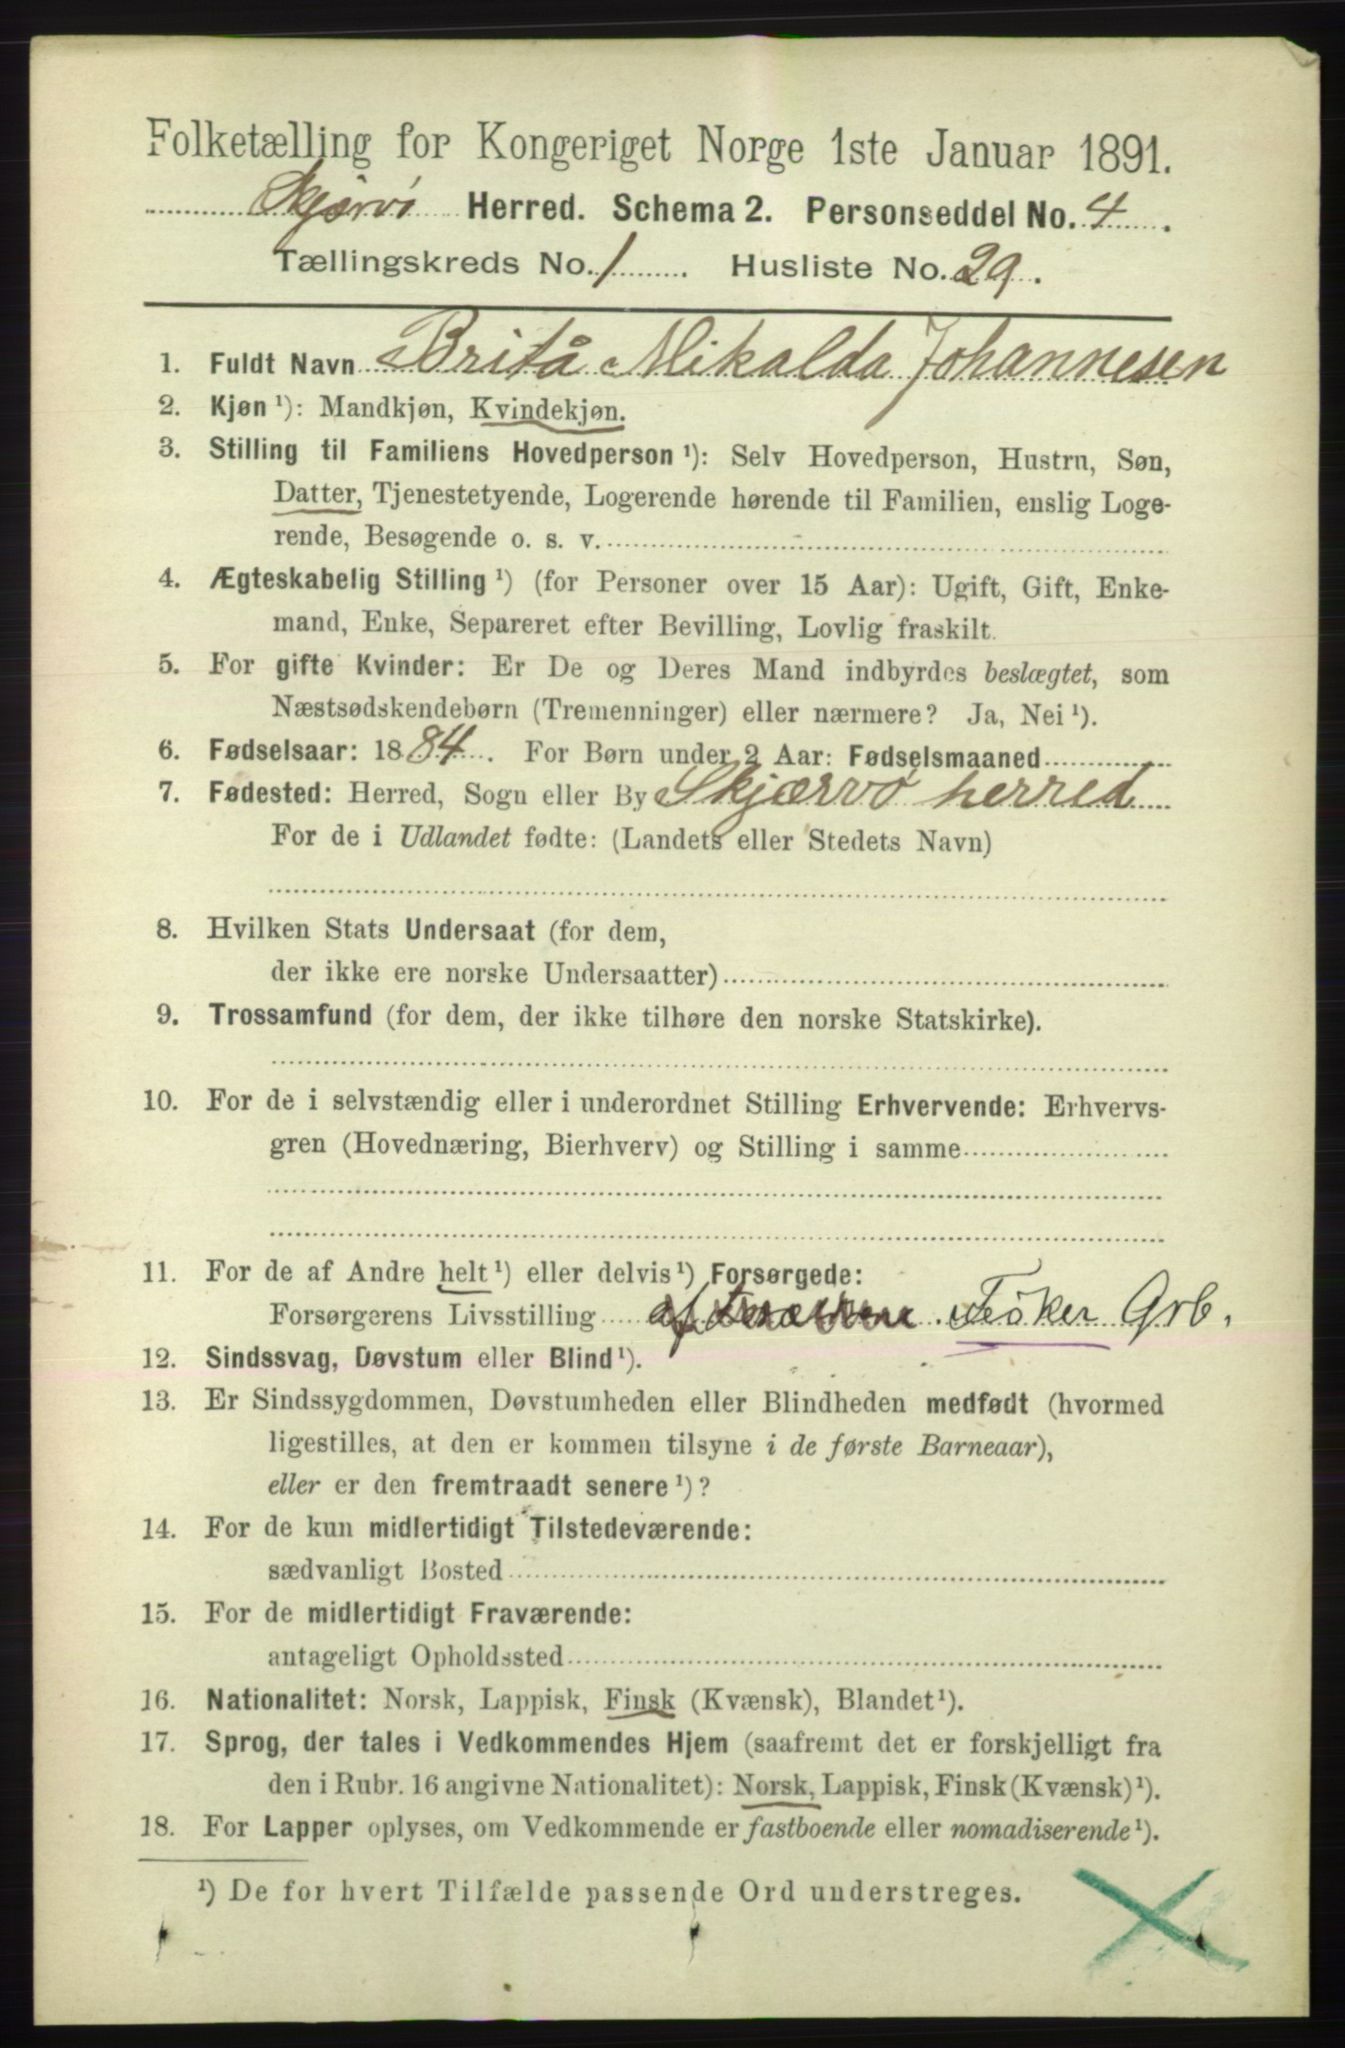 Folketælling for Kongeriget Norge 1ste Januar 1891.
Skjærvø Herred. Schema 2. Personseddel No. 4.
Tællingskreds No. 1. Husliste No. 29.
1. Fuldt Navn Britå Mikalda Johannesen
2. Kjøn ¹): Mandkjøn, Kvindekjøn.
3. Stilling til Familiens Hovedperson ¹): Selv Hovedperson, Hustru, Søn,
Datter, Tjenestetyende, Logerende hørende til Familien, enslig Loge-
rende, Besøgende o. s. v.
4. Ægteskabelig Stilling ¹) (for Personer over 15 Aar): Ugift, Gift, Enke-
mand, Enke, Separeret efter Bevilling, Lovlig fraskilt.
5. For gifte Kvinder: Er De og Deres Mand indbyrdes beslægtet, som
Næstsødskendebørn (Tremenninger) eller nærmere? Ja, Nei ¹).
6. Fødselsaar: 1884. For Børn under 2 Aar: Fødselsmaaned
7. Fødested: Herred, Sogn eller By Skjærvø herred
For de i Udlandet fødte: (Landets eller Stedets Navn)
8. Hvilken Stats Undersaat (for dem,
der ikke ere norske Undersaatter)
9. Trossamfund (for dem, der ikke tilhøre den norske Statskirke).
10. For de i selvstændig eller i underordnet Stilling Erhvervende: Erhvervs-
gren (Hovednæring, Bierhverv) og Stilling i samme
11. For de af Andre helt ¹) eller delvis ¹) Forsørgede:
Forsørgerens Livsstilling af Fisker Grb.
12. Sindssvag, Døvstum eller Blind ¹).
13. Er Sindssygdommen, Døvstumheden eller Blindheden medfødt (hvormed
ligestilles, at den er kommen tilsyne i de første Barneaar),
eller er den fremtraadt senere ¹)?
14. For de kun midlertidigt Tilstedeværende:
sædvanligt Bosted
15. For de midlertidigt Fraværende:
antageligt Opholdssted
16. Nationalitet: Norsk, Lappisk, Finsk (Kvænsk), Blandet ¹).
17. Sprog, der tales i Vedkommendes Hjem (saafremt det er forskjelligt fra
den i Rubr. 16 angivne Nationalitet): Norsk, Lappisk, Finsk (Kvænsk) ¹).
18. For Lapper oplyses, om Vedkommende er fastboende eller nomadiserende ¹).
¹) De for hvert Tilfælde passende Ord understreges.